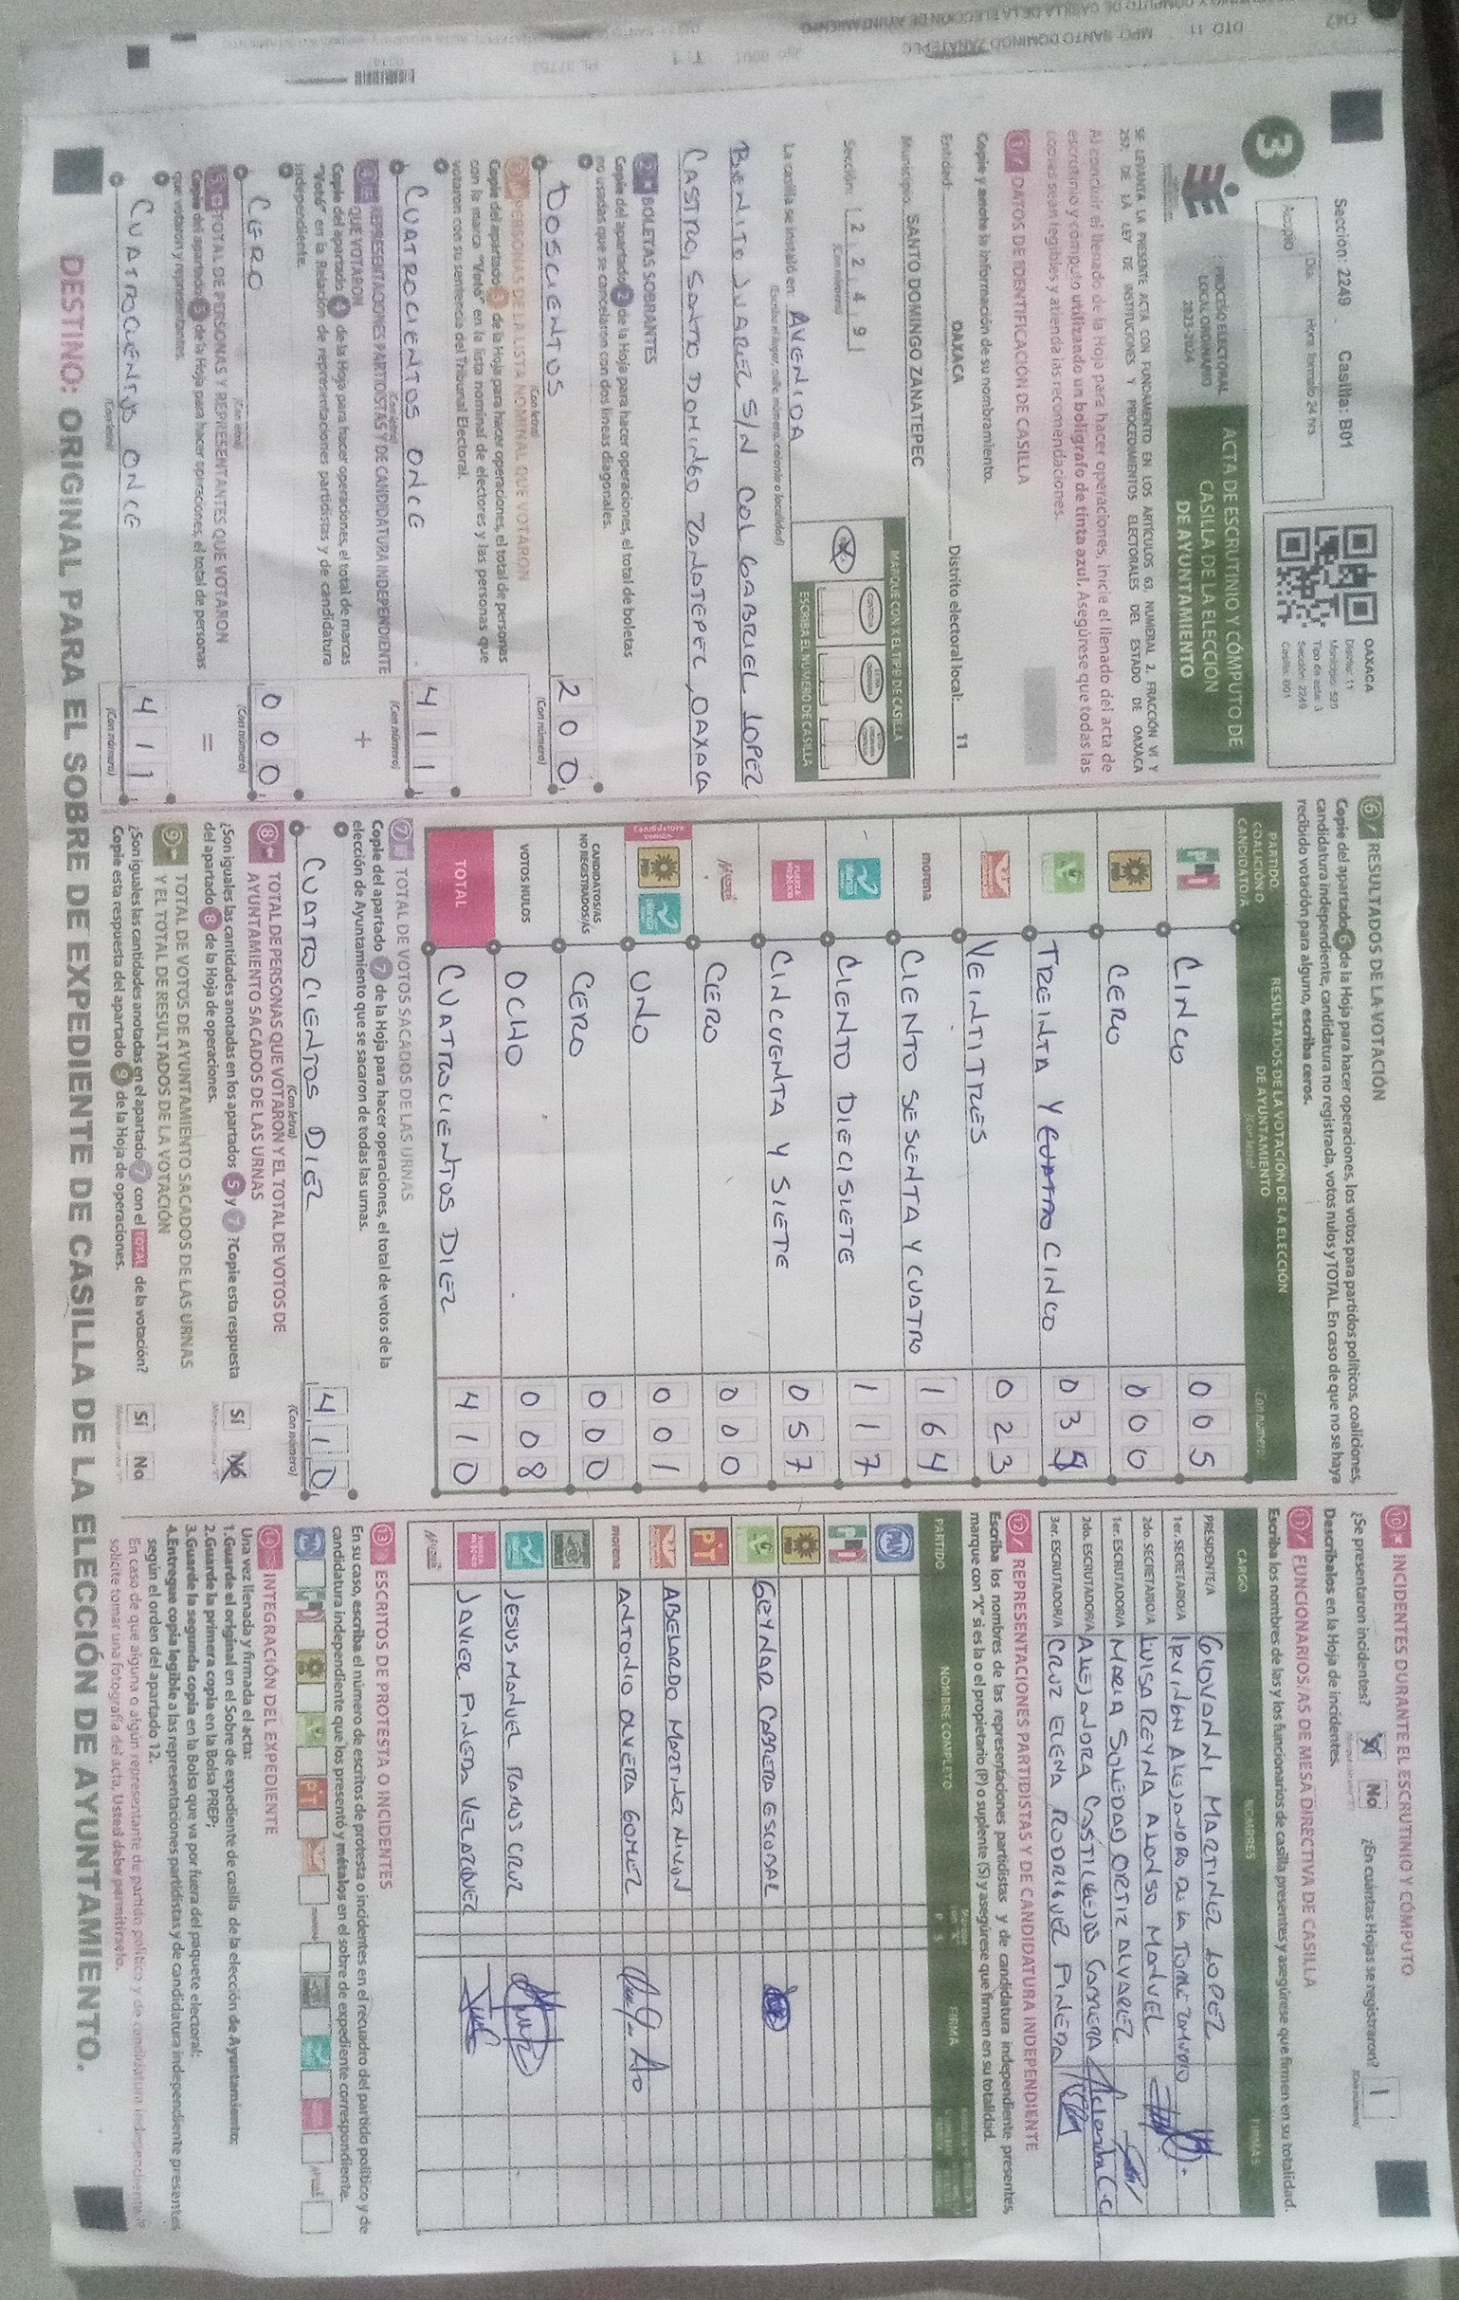 Sección: 2249 . Casilla: B01
OAXACA
Distrito: 11
Municipio: 525
Tipo de acta: 3
Sección: 2249
Casilla: B01
Acopio
Día
Hora formato 24 hrs
3
PROCESO ELECTORAL
LOCAL ORDINARIO
2023-2024
ACTA DE ESCRUTINIO Y CÓMPUTO DE
CASILLA DE LA ELECCIÓN
DE AYUNTAMIENTO
SE LEVANTA LA PRESENTE ACTA CON FUNDAMENTO EN LOS ARTÍCULOS 63, NUMERAL 2, FRACCIÓN VI Y
257, DE LA LEY DE INSTITUCIONES Y PROCEDIMIENTOS ELECTORALES DEL ESTADO DE OAXACA
Al concluir el llenado de la Hoja para hacer operaciones, inicie el llenado del acta de
escrutinio y cómputo utilizando un bolígrafo de tinta azul. Asegúrese que todas las
copias sean legibles y atienda las recomendaciones.
1 DATOS DE IDENTIFICACIÓN DE CASILLA
Copie y anote la información de su nombramiento.
Entidad: OAXACA Distrito electoral local: 11
Municipio: SANTO DOMINGO ZANATEPEC
Sección: 2 2 4 9
(Con número)
MARQUE CON X EL TIPO DE CASILLA
ESCRIBA EL NÚMERO DE CASILLA
La casilla se instaló en: AVENIDA
(Escriba el lugar, calle, número, colonia o localidad)
BENITO JUAREZ S/N COL GABRIEL LOPEZ
CASTRO, SANTO DOMINGO ZANATEPEC, OAXACA
2 BOLETAS SOBRANTES
Copie del apartado 2 de la Hoja para hacer operaciones, el total de boletas
no usadas que se cancelaron con dos líneas diagonales.
DOSCIENTOS 200
(Con letra) (Con número)
3 PERSONAS DE LA LISTA NOMINAL QUE VOTARON
Copie del apartado 3 de la Hoja para hacer operaciones, el total de personas
con la marca "Votó" en la lista nominal de electores y las personas que
votaron con su sentencia del Tribunal Electoral.
CUATROCIENTOS ONCE 411
(Con letra) (Con número)
4 REPRESENTACIONES PARTIDISTAS Y DE CANDIDATURA INDEPENDIENTE
QUE VOTARON
Copie del apartado 4 de la Hoja para hacer operaciones, el total de marcas
"Votó" en la Relación de representaciones partidistas y de candidatura
independiente.
+
CERO 000
(Con letra) (Con número)
5 TOTAL DE PERSONAS Y REPRESENTANTES QUE VOTARON
Copie del apartado 5 de la Hoja para hacer operaciones, el total de personas
que votaron y representantes.
=
CUATROCIENTOS ONCE 411
(Con letra) (Con número)
6 RESULTADOS DE LA VOTACIÓN
Copie del apartado 6 de la Hoja para hacer operaciones, los votos para partidos políticos, coaliciones,
candidatura independiente, candidatura no registrada, votos nulos y TOTAL. En caso de que no se haya
recibido votación para alguno, escriba ceros.
PARTIDO,
COALICIÓN O
CANDIDATO/A
RESULTADOS DE LA VOTACIÓN DE LA ELECCIÓN
DE AYUNTAMIENTO
(Con letra) (Con número)
PRI CINCO 005
PRD CERO 000
TREINTA Y CUATRO CINCO 035
VEINTITRES 023
morena CIENTO SESENTA Y CUATRO 164
nueva alianza CIENTO DIECISIETE 117
FUERZA POR MÉXICO CINCUENTA Y SIETE 057
CERO 000
Candidatura común PRD nueva alianza UNO 001
CANDIDATOS/AS
NO REGISTRADOS/AS CERO 000
VOTOS NULOS OCHO 008
TOTAL CUATROCIENTOS DIEZ 410
7 TOTAL DE VOTOS SACADOS DE LAS URNAS
Copie del apartado 7 de la Hoja para hacer operaciones, el total de votos de la
elección de Ayuntamiento que se sacaron de todas las urnas.
CUATROCIENTOS DIEZ 410
(Con letra) (Con número)
8 TOTAL DE PERSONAS QUE VOTARON Y EL TOTAL DE VOTOS DE
AYUNTAMIENTO SACADOS DE LAS URNAS
¿Son iguales las cantidades anotadas en los apartados 5 y 7 ?Copie esta respuesta
del apartado 8 de la Hoja de operaciones.
Sí No
9 TOTAL DE VOTOS DE AYUNTAMIENTO SACADOS DE LAS URNAS
Y EL TOTAL DE RESULTADOS DE LA VOTACIÓN
¿Son iguales las cantidades anotadas en el apartado 7 con el TOTAL de la votación?
Copie esta respuesta del apartado 9 de la Hoja de operaciones.
Sí No
10 INCIDENTES DURANTE EL ESCRUTINIO Y CÓMPUTO
¿Se presentaron incidentes? Sí No ¿En cuántas Hojas se registraron? 1
Descríbalos en la Hoja de incidentes.
11 FUNCIONARIOS/AS DE MESA DIRECTIVA DE CASILLA
Escriba los nombres de las y los funcionarios de casilla presentes y asegúrese que firmen en su totalidad.
CARGO NOMBRES FIRMAS
PRESIDENTE/A GIOVANNI MARTINEZ LOPEZ
1er. SECRETARIO/A
2do. SECRETARIO/A LUISA REYNA ALONSO MANUEL
1er. ESCRUTADOR/A MARIA SOLEDAD ORTIZ ALVAREZ
2do. ESCRUTADOR/A ALEJANDRA CASTILLEJOS CABRERA
3er. ESCRUTADOR/A CRUZ ELENA RODRIGUEZ PINEDA
12 REPRESENTACIONES PARTIDISTAS Y DE CANDIDATURA INDEPENDIENTE
Escriba los nombres de las representaciones partidistas y de candidatura independiente presentes,
marque con "X" si es la o el propietario (P) o suplente (S) y asegúrese que firmen en su totalidad.
PARTIDO NOMBRE COMPLETO P S FIRMA
PAN
PRI
PRD
GEYNAR CABRERA ESCOBAR
PT
ABELARDO MARTINEZ NIVON
morena ANTONIO OLVERA GOMEZ
nueva alianza JESUS MANUEL RAMOS CRUZ
FUERZA POR MÉXICO JAVIER PINEDA VELAZQUEZ
13 ESCRITOS DE PROTESTA O INCIDENTES
En su caso, escriba el número de escritos de protesta o incidentes en el recuadro del partido político y de
candidatura independiente que los presentó y métalos en el sobre de expediente correspondiente.
14 INTEGRACIÓN DEL EXPEDIENTE
Una vez llenada y firmada el acta:
1.Guarde el original en el Sobre de expediente de casilla de la elección de Ayuntamiento;
2.Guarde la primera copia en la Bolsa PREP;
3.Guarde la segunda copia en la Bolsa que va por fuera del paquete electoral;
4.Entregue copia legible a las representaciones partidistas y de candidatura independiente presentes
según el orden del apartado 12.
En caso de que alguna o algún representante de partido político y de candidatura independiente
solicite tomar una fotografía del acta, Usted debe permitírselo.
DESTINO: ORIGINAL PARA EL SOBRE DE EXPEDIENTE DE CASILLA DE LA ELECCIÓN DE AYUNTAMIENTO.